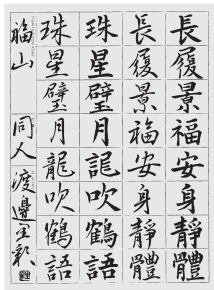 長履景福安身靜體
長履景福安身靜體
珠星璧月龍吹鶴語
珠星璧月龍吹鶴語
福山 同人 渡邊